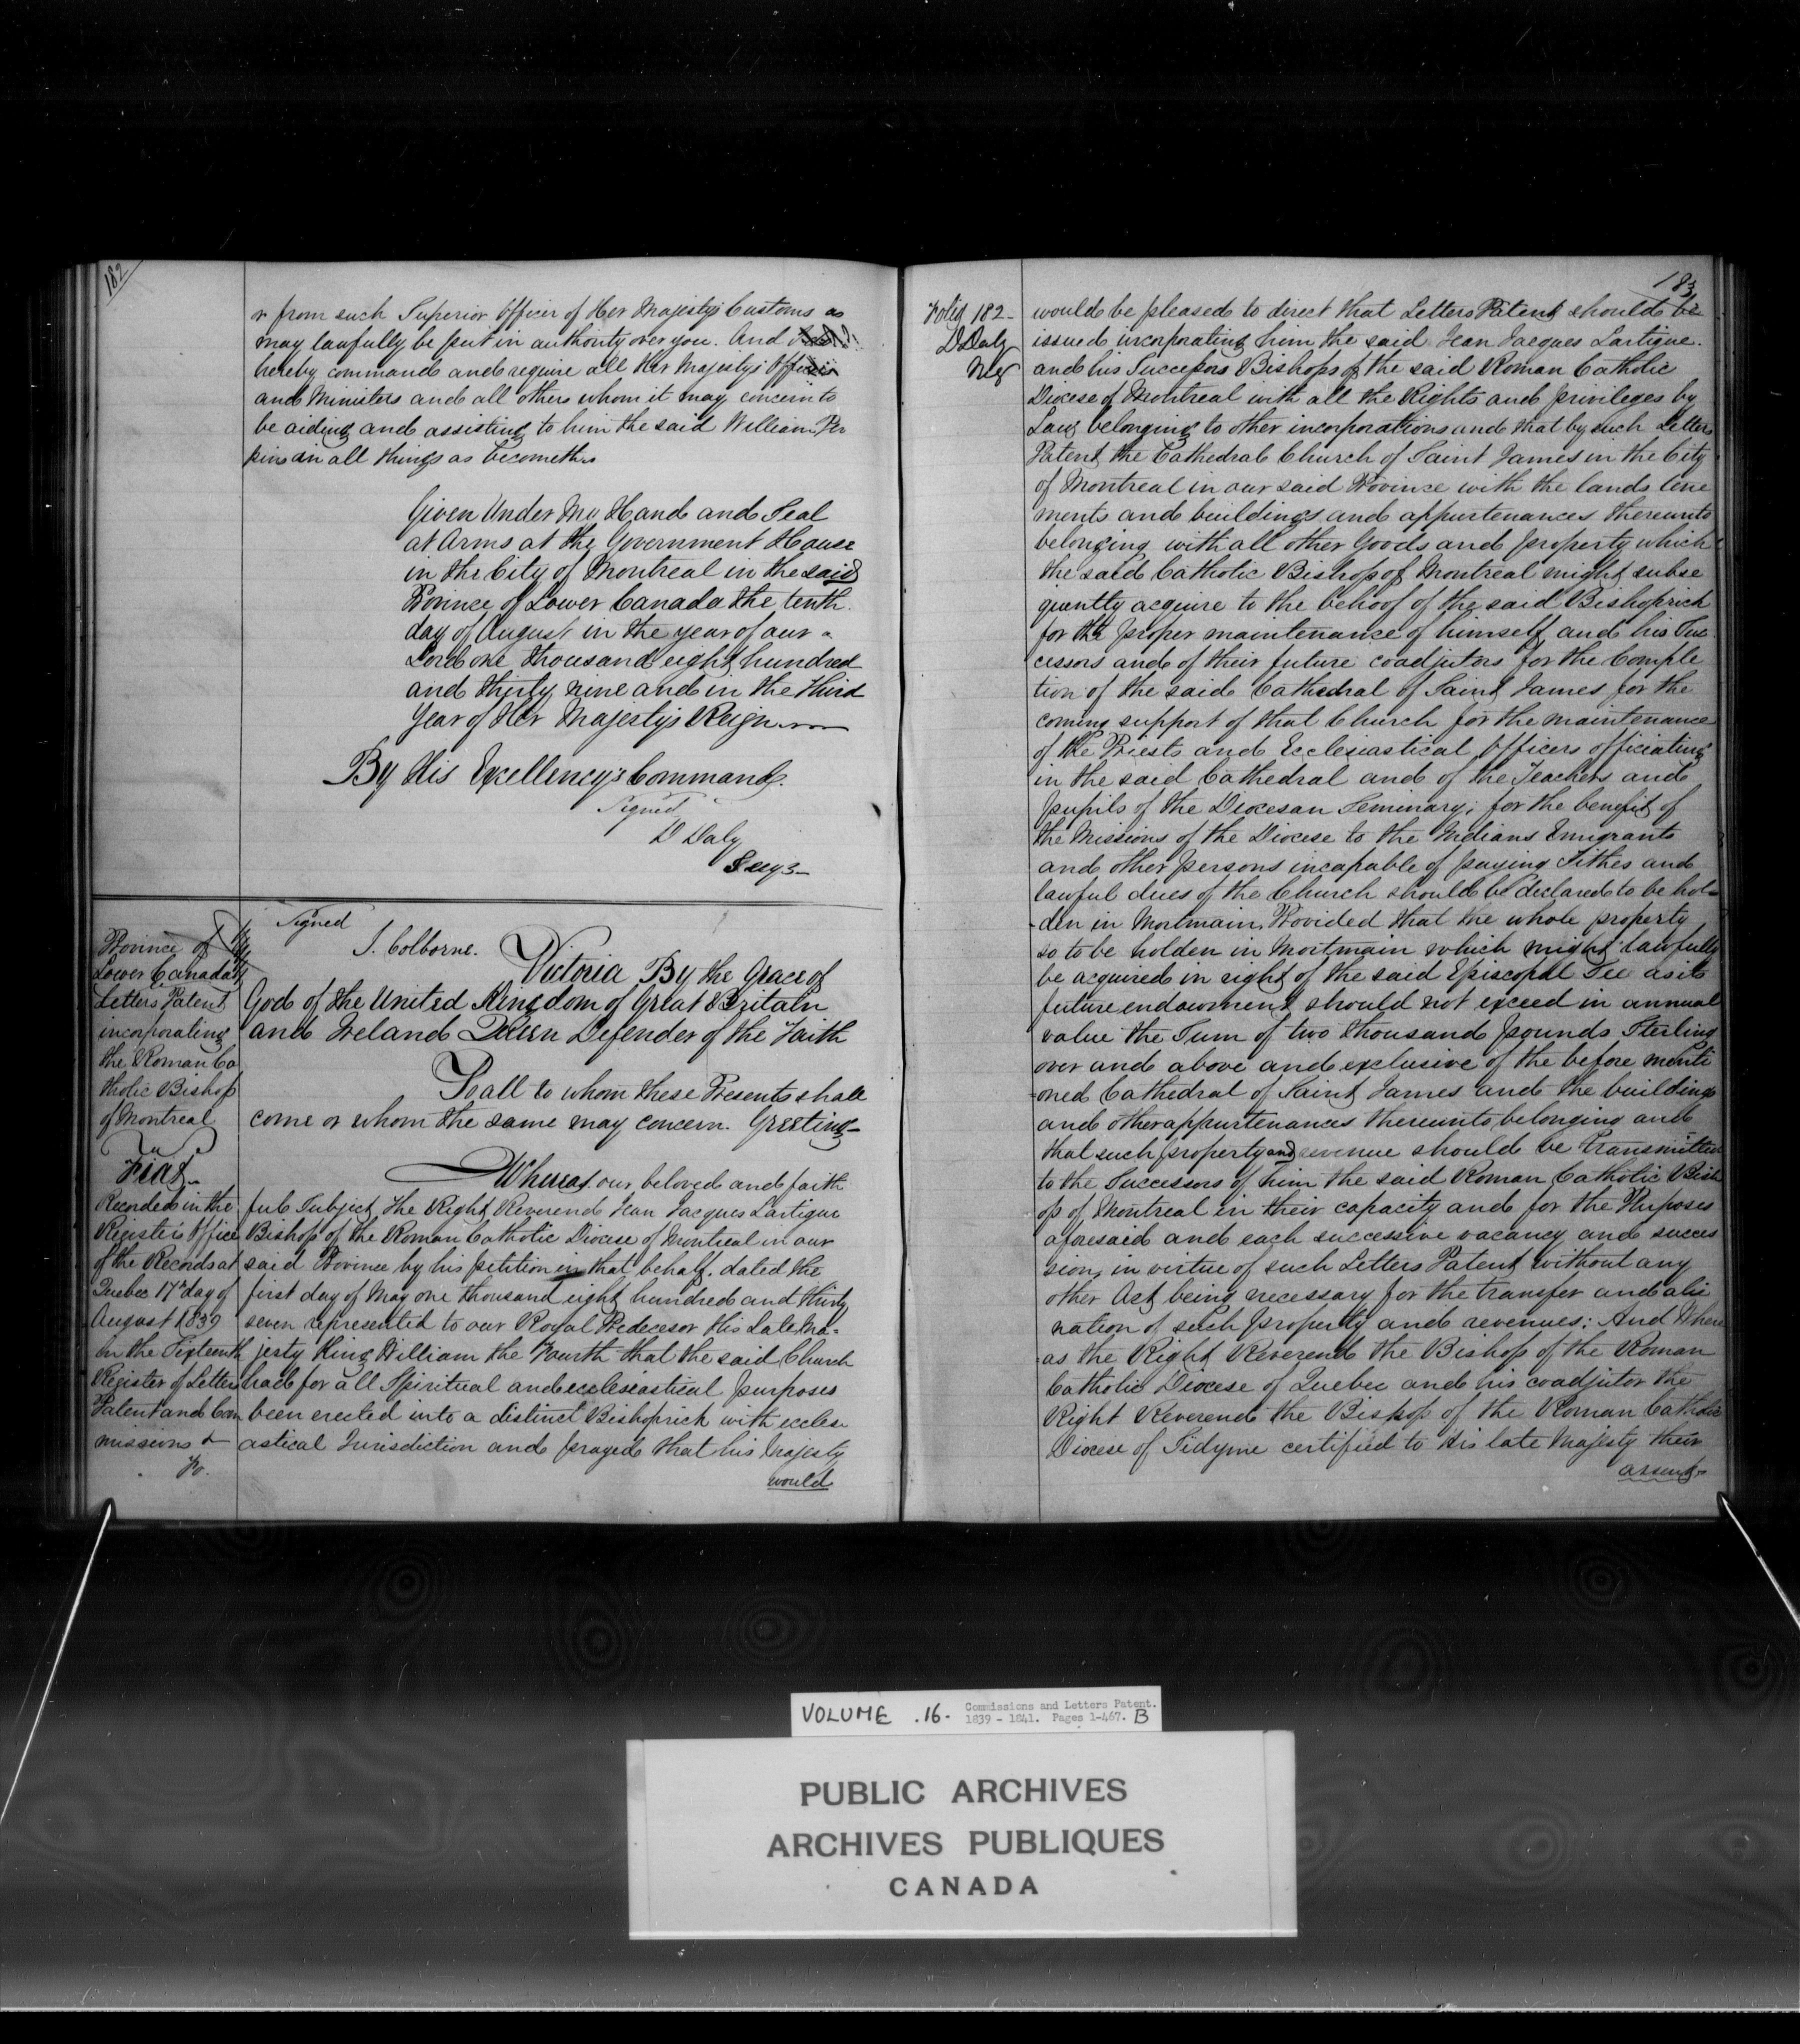 182
r from such Superior Officer of Her Majesty's Customs as
may lawfully be put in authority over you. And I
hereby command and require all Her Majesty's Officers
and Ministers and all others whom it may concern to
be aiding and assisting to him the said William Per
kins in all things as becometh
Given Under My Hand and Seal
at Arms at the Government House
in the City of Montreal in the said
Province of Lower Canada the tenth
day of August in the year of our
Lord one thousand eight hundred
and thirty nine and in the third
Year of Her Majesty's Reign
By His Excellency's Command.
Signed
D Daly
Province of
Lower Canada
Letters Patent
incorporating
the Roman Ca
tholic Bishop
of Montreal
Fiat
Recorded in the
Register's Office
of the Records at
Quebec 17th day of
August 1839
In the Sixteenth
Register of Letters
Patent and Com
missions &
Fo.
Signed
J. Colborne.
Victoria By the Grace of
God of the United Kingdom of Great Britain
and Ireland Queen Defender of the Faith
To all to whom these Presents shall
come or whom the same may concern. Greeting
Whereas our beloved and faith
ful Subject, the Right Reverend Jean Jacques Lartigue
Bishop of the Roman Catholic Diocese of Montreal in our
said Province by his petition in that behalf, dated the
first day of May one thousand eight hundred and thirty
seven represented to our Royal Predecesor His Late Ma=
jesty King William the Fourth that the said Church
had for all Spiritual and ecclesiastical purposes
been erected into a distinct Bishoprick with eccles
astical Jurisdiction and prayed that his Majesty
would
183
Folio 182-
D Daly
would be pleased to direct that Letters Patent should be
issued incorporating him the said Jean Jacques Lartigue.
and his Successors Bishops of the said Roman Catholic
Diocese of Montreal with all the Rights and privileges by
Law belonging to other incorporations and that by such Letters
Patent the Cathedral Church of Saint James in the City
of Montreal in our said Province with the lands tene
ments and buildings and appurtenances thereunto
belonging with all other Goods and property which
the said Catholic Bishop of Montreal might subse
quently acquire to the behoof of the said Bishoprick
for the proper maintenance of himself and his Suc
cessors and of their future coadjutors for the Comple
tion of the said Cathedral of Saint James, for the
coming support of that Church for the maintenance
of the Priests and Ecclesiastical Officers officiating
in the said Cathedral and of the Teachers and
pupils of the Diocesan Seminary; for the benefit of
the Missions of the Diocese to the Indians Emigrants
and other persons incapable of paying Tithes and
lawful dues of the Church should be declared to be hol=
-den in Mortmain, Provided that the whole property
so to be holden in Mortmain which might lawfully
be acquired in right of the said Episcopal See as its
future endowment should not exceed in annual
value the Sum of two thousand pounds Sterling
over and above and exclusive of the before menti
=oned Cathedral of Saint James and the buildings
and other appurtenances thereunto belonging and
that such property and revenue should be transmitted
to the Successors of him the said Roman Catholic Bish
op of Montreal in their capacity and for the Purposes
aforesaid and each successive vacancy and succes
sion, in virtue of such Letters Patent without any
other Act being necessary for the transfer and alie
nation of such property and revenues: And Where
=as the Right Reverend the Bishop of the Roman
Catholic Diocese of Quebec and his coadjutor the
Right Reverend the Bishop of the Roman Catholic
Diocese of Sidyme certified to His late Majesty their
assent
VOLUME .16. Commissions and Letters Patent.
1839 - 1841. Pages 1-467. B
PUBLIC ARCHIVES
ARCHIVES PUBLIQUES
CANADA